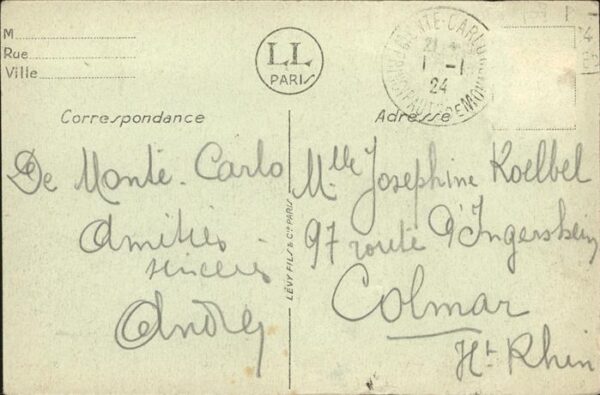 M
Rue
Ville
LL
PARIS
MONTE-CARLO
1-1
24
PRINCIPAUTÉ DE MONACO
Correspondance
Adresse
De Monte-Carlo
Amitiés
sincères
André
LÉVY FILS & Cie PARIS
Mlle Josephine Koelbel
97 route d'Ingersheim
Colmar
Ht Rhin